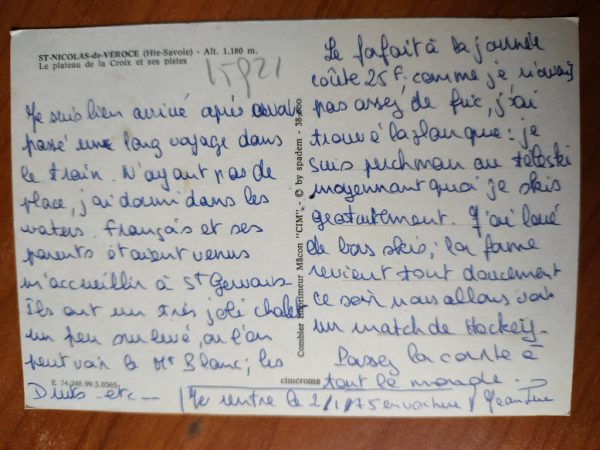 ST-NICOLAS-de-VÉROCE (Hte-Savoie) - Alt. 1.180 m.
Le plateau de la Croix et ses pistes
15921
Je suis bien arrivé après avoir
passé une long voyage dans
le train. N'ayant pas de
place, j'ai dormi dans les
waters. français et ses
parents étaient venus
m'accueillir à St Gervais
Ils ont un très joli chalet
un peu surélevé, ou l'on
peut voir le Mt Blanc; les
Drus etc -
E 74.248.99.3.0365
Combier Imprimeur Mâcon "CIM" - © by spadem - 38-800
cimcrome
Le forfait à la journée
coûte 25 F. comme je n'avais
pas assez de fric, j'ai
trouvé la planque : je
suis perchman au téléski
moyennant quoi je skis
gratuitement. J'ai loué
de bons skis; la forme
revient tout doucement
ce soir nous allons voir
un match de Hockey.
Passez la carte à
tout le monde.
Je rentre le 2/1/75 en voiture